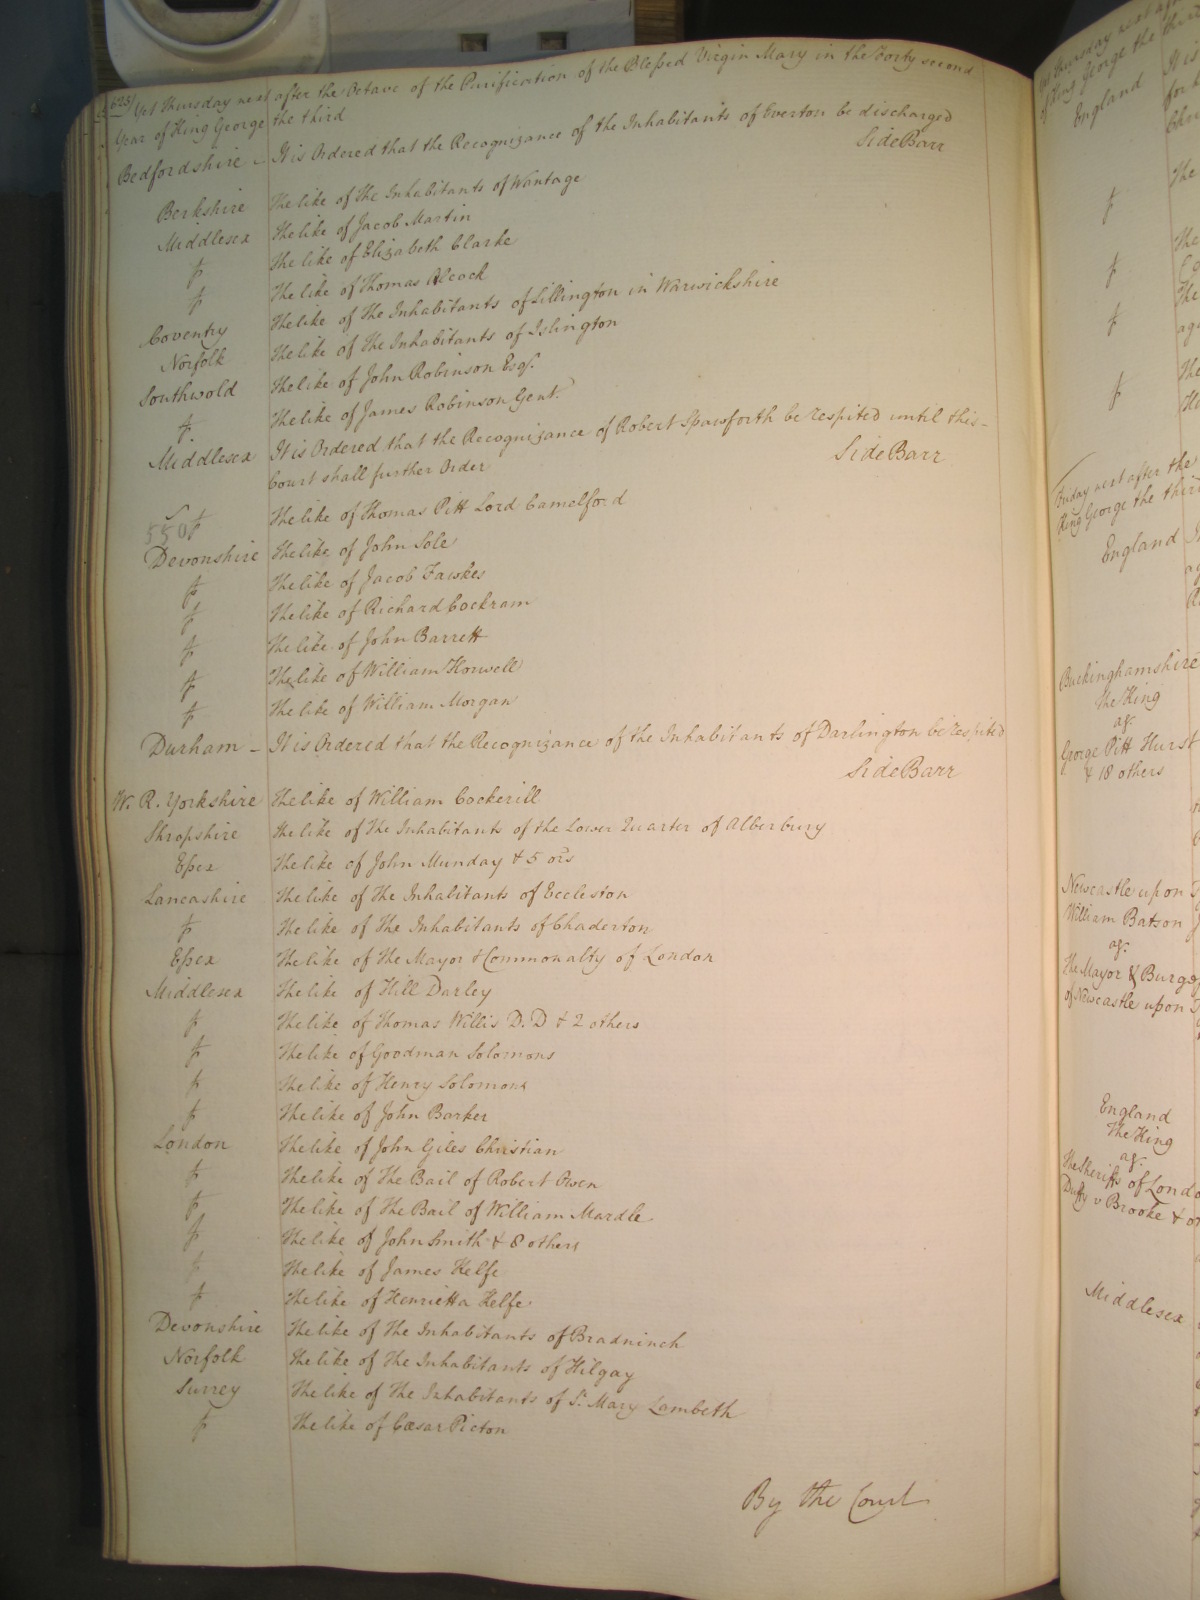 Yet Thursday next after the Octave of the Purification of the Blessed Virgin Mary in the Forty second
Year of King George the third
Bedfordshire - It is Ordered that the Recognizance of the Inhabitants of Everton be discharged
Side Barr
Berkshire The like of The Inhabitants of Wantage
Middlesex The like of Jacob Martin
The like of Elizabeth Clarke
The like of Thomas Alcock
Coventry The like of The Inhabitants of Lillington in Warwickshire
Norfolk The like of the Inhabitants of Islington
Southwold The like of John Robinson Esqr.
The like of James Robinson Gent.
Middlesex It is Ordered that the Recognizance of Robert Spawforth be respited until this-
Court shall further Order
Side Barr
550 The like of Thomas Pitt Lord Camelford
Devonshire The like of John Sole
The like of Jacob Fawkes
The like of Richard Cockram
The like of John Barrett
The like of William Howell
The like of William Morgan
Durham - It is Ordered that the Recognizance of the Inhabitants of Darlington be respited
Side Barr
W. R. Yorkshire The like of William Cockerill
Shropshire the like of The Inhabitants of the Lower Quarter of Alberbury
Essex The like of John Munday & 5 ors
Lancashire The like of The Inhabitants of Eccleston
The like of The Inhabitants of Chaderton
Essex The like of the Mayor & Commonalty of London
Middlesex The like of Hill Darley
The like of Thomas Willis D.D & 2 others
The like of Goodman Solomons
The like of Henry Solomons
The like of John Barker
London The like of John Giles Christian
The like of The Bail of Robert Owen
The like of The Bail of William Mardle
The like of John Smith & 8 others
The like of James Kelfe
The like of Henrietta Kelfe
Devonshire The like of The Inhabitants of Bradninch
Norfolk the like of The Inhabitants of Hilgay
Surrey The like of The Inhabitants of St. Mary Lambeth
The like of Cæsar Picton
By the Court
King George the
England
Friday next after the
King George the third
England
Buckinghamshire
The King
agt.
George Pitt Hurst
& 18 others
Newcastle upon
William Batson
agt.
The Mayor & Burge
of Newcastle upon
England
The King
agt.
The Sheriffs of Londo
Duffy v Brooke & or
Middlesex